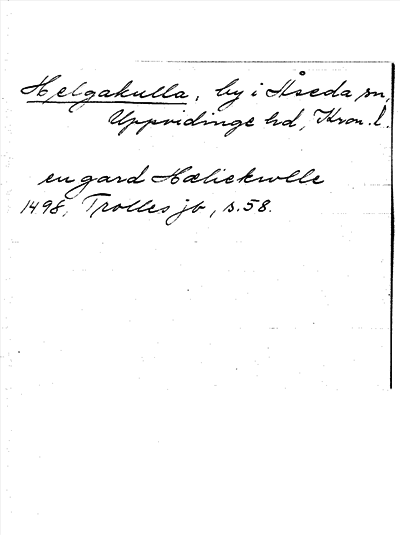 Helgakulla, by i Åseda sn,
Uppvidinge hd, Kron. l.
en gard Hæliekwlle
1498, Trolles jb, s. 58.